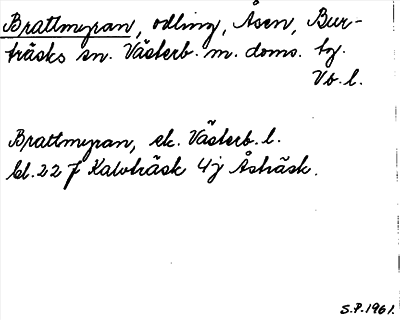 Brattmyran, odling, Åsen, Bur-
träsks sn. Västerb. m. doms. tg.
Vb. l.
Brattmyran, ek. Västerb. l.
bl. 22 f Kalvträsk 4j Åsträsk.
S.P. 1961.